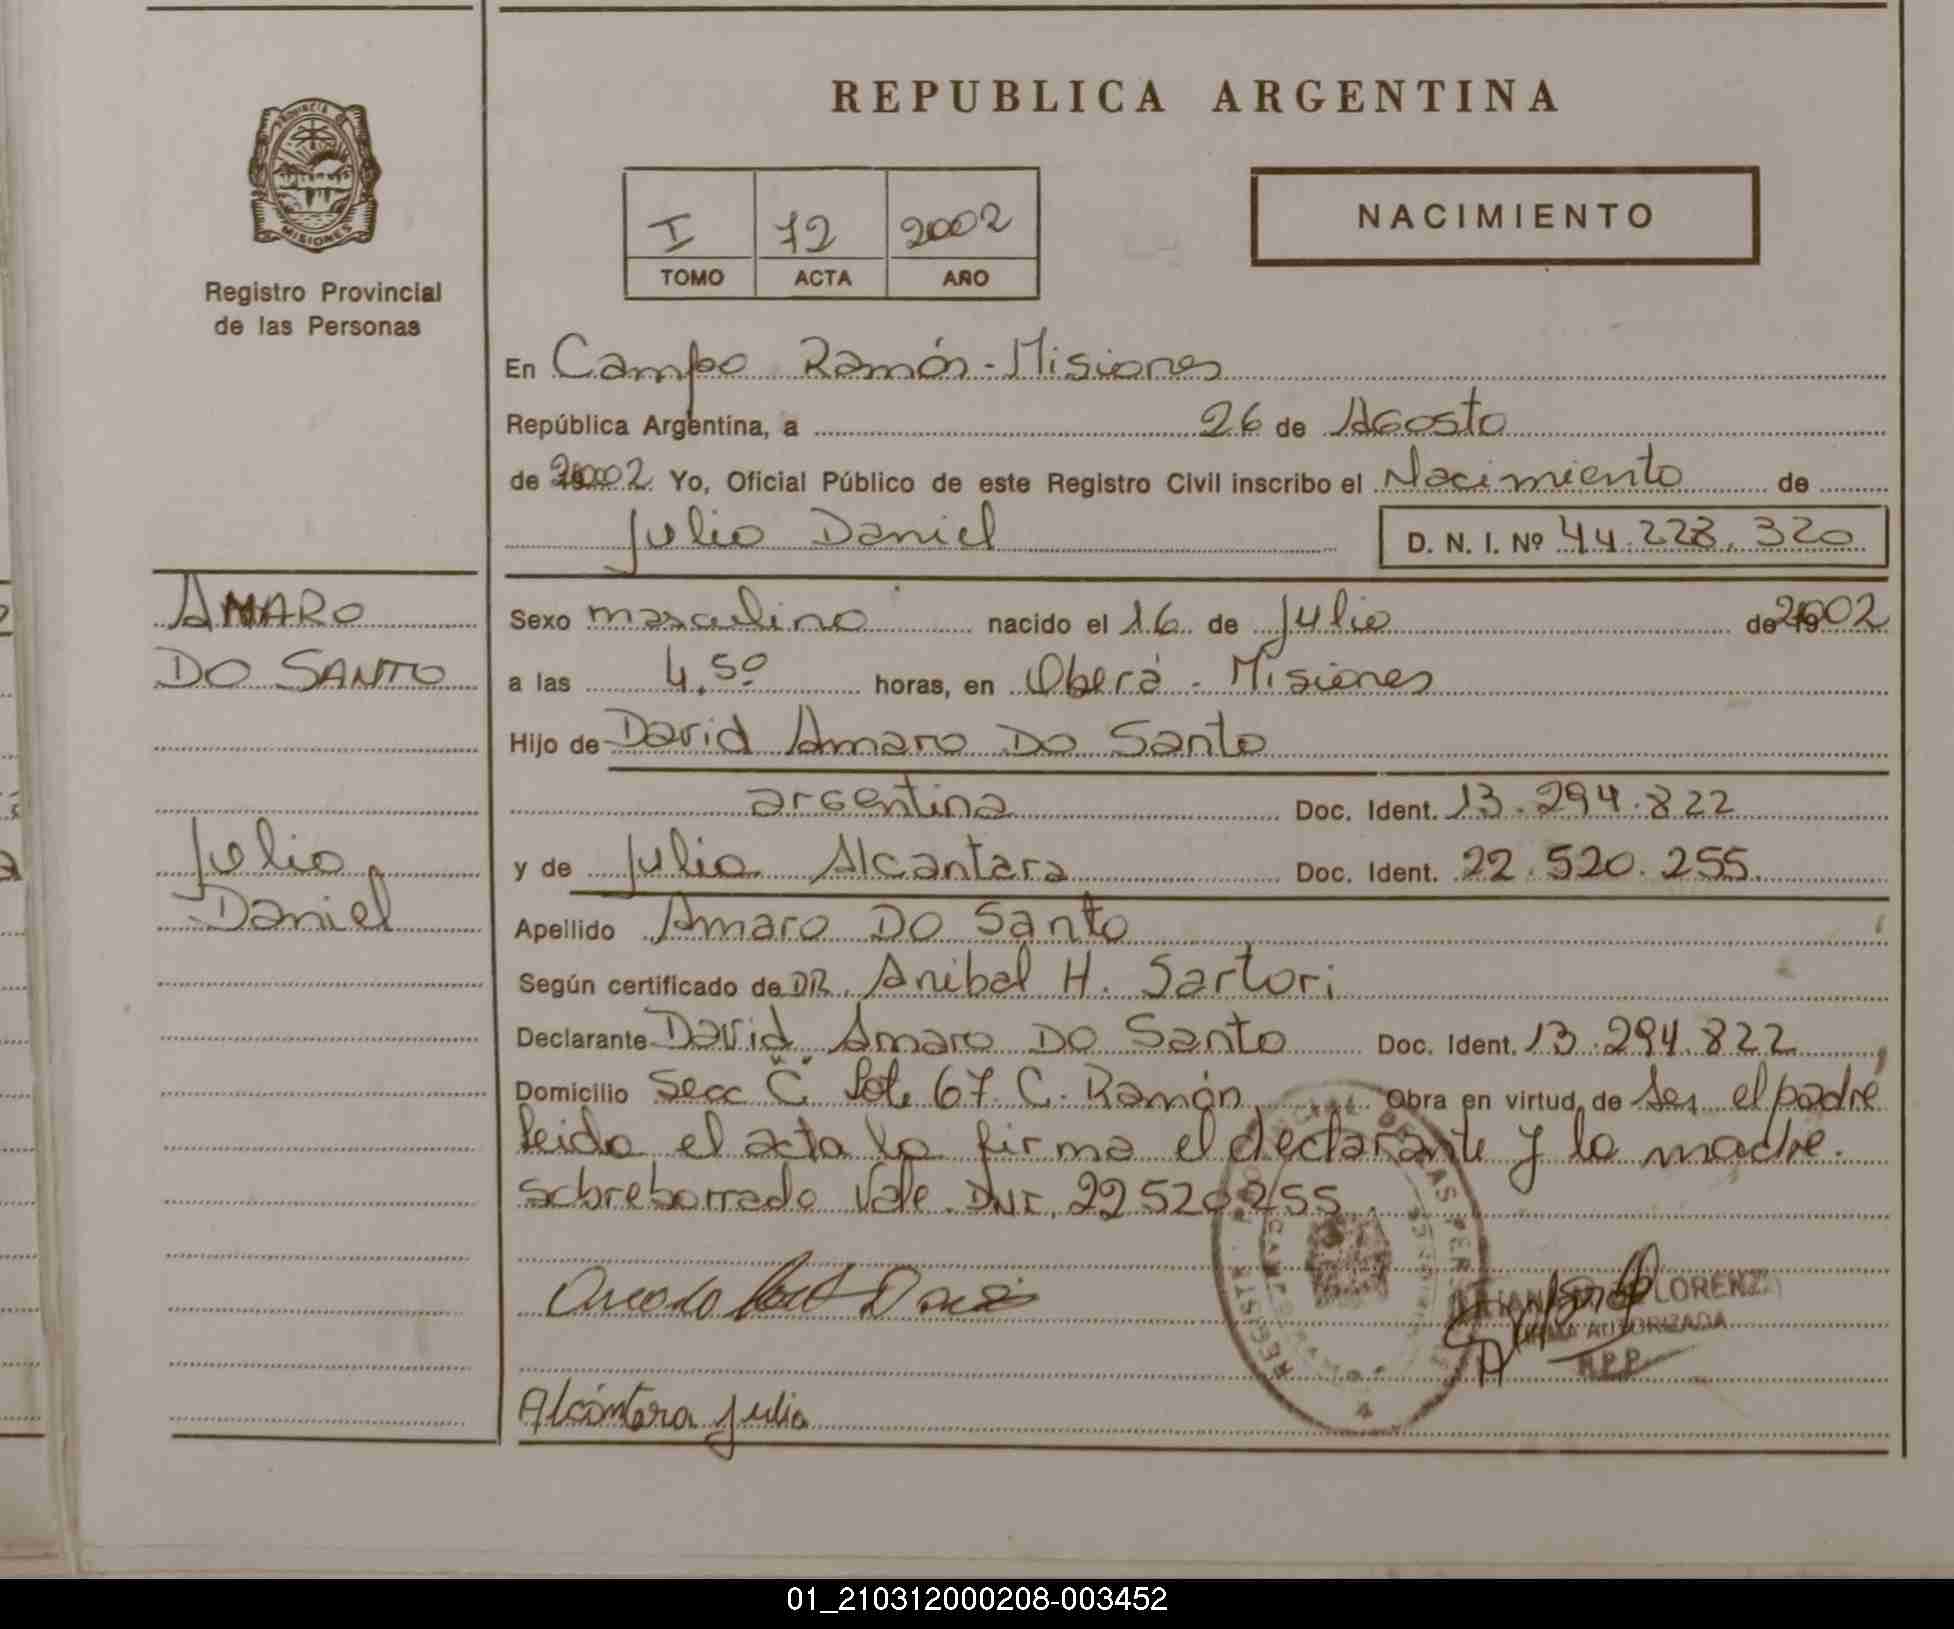 REPUBLICA ARGENTINA
PROVINCIA DE
MISIONES
Registro Provincial
de las Personas
I 72 2002
TOMO ACTA AÑO
NACIMIENTO
En Campo Ramón - Misiones
República Argentina, a 26 de Agosto
de 2002 Yo, Oficial Público de este Registro Civil inscribo el Nacimiento de
Julio Daniel D. N. I. Nº 44.228.320
AMARO
DO SANTO
Julio
Daniel
Sexo masculino nacido el 16 de Julio de 2002
a las 4.50 horas, en Oberá - Misiones
Hijo de David Amaro Do Santo
argentina Doc. Ident. 13.294.822
y de Julia Alcantara Doc. Ident. 22.520.255
Apellido Amaro Do Santo
Según certificado de DR. Anibal H. Sartori
Declarante David Amaro Do Santo Doc. Ident. 13.294.822
Domicilio Secc "C" Lote 67 C. Ramón Obra en virtud de Ser el padre
leida el acta la firma el declarante y la madre.
sobreborrado Vale. DNI. 22520255.
LORENZ
FIRMA AUTORIZADA
R.P.P.
Alcántara Julia
01_210312000208-003452